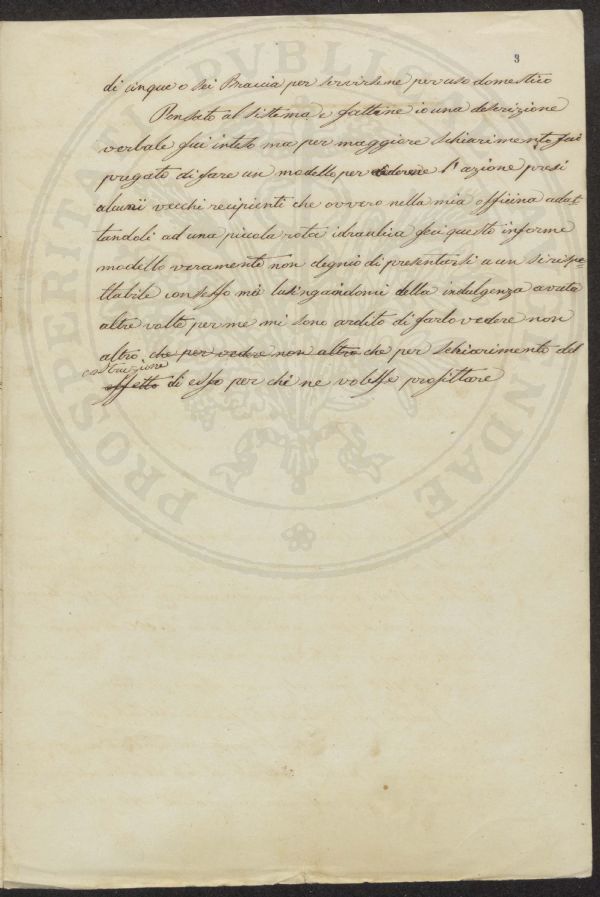 3
di cinque o sei Braccia per servirsene per uso domestico
Pensato al sistema e fattine io una descrizione
verbale fui inteso ma per maggiore schiarimento fui
pregato di fare un modello per vederene l'azione presi
alcuni vecchi recipienti che ovvero nella mia officina adat-
tandoli ad una piccola rota idraulica feci questo informe
modello veramente non degnio di presentarsi a un si rispe-
ttabile consesso mà lusingandomi della indulgenza avuta
altre volte per me mi sono ardito di farlo vedere non
altro, che per vedere non altro che per schiarimento del
costruzione
effetto di esso per chi ne volesse profittare
PROSPERITATI PVBLICAE AVGENDAE